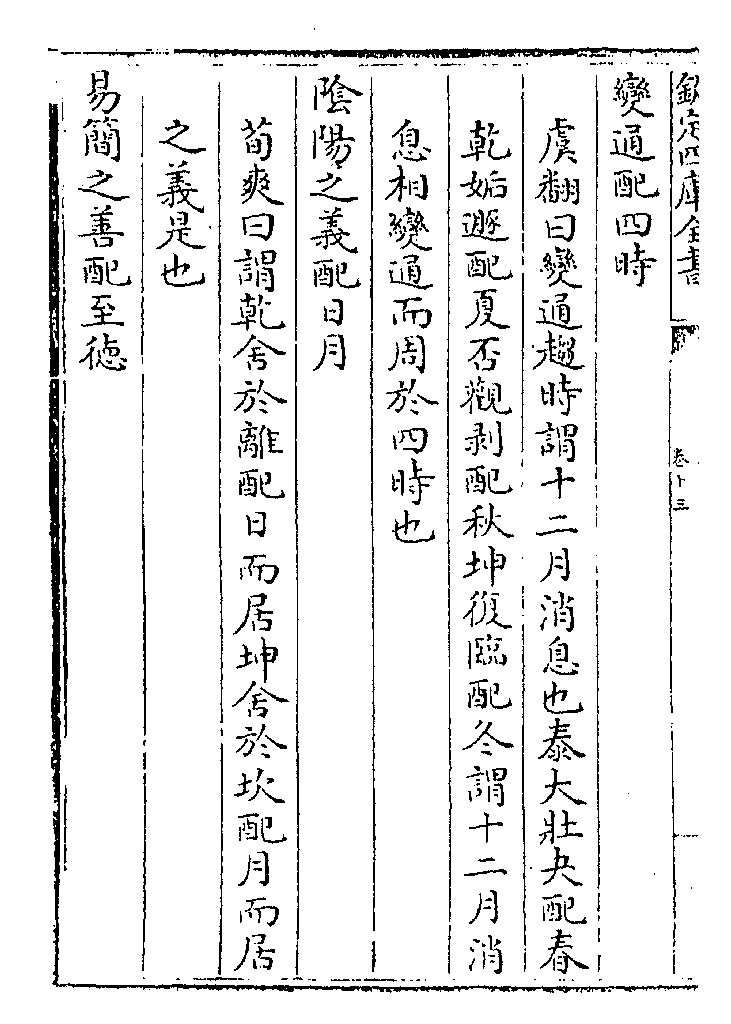 欽定四庫全書
卷十三
變通配四時
虞翻曰變通趨時謂十二月消息也泰大壯夬配春
乾姤遯配夏否觀剥配秋坤復臨配冬謂十二月消
息相變通而周於四時也
陰陽之義配日月
荀爽曰謂乾舍於離配日而居坤舍於坎配月而居
之義是也
易簡之善配至徳